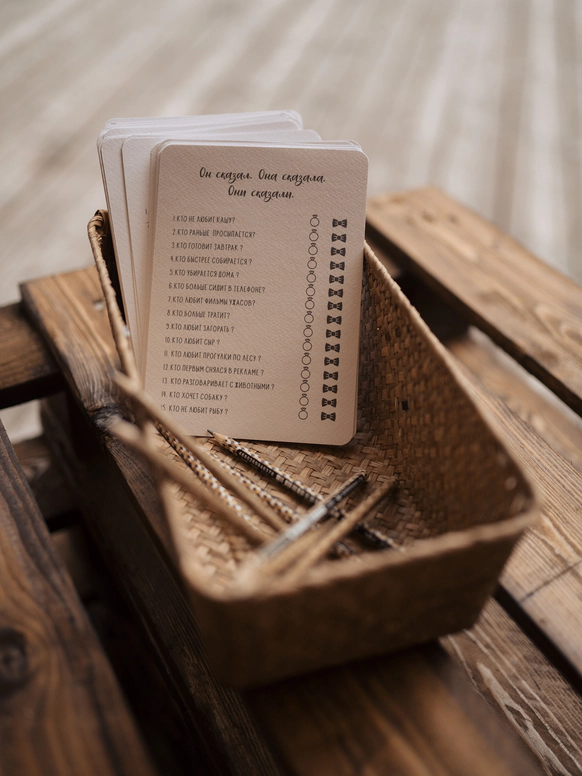 Он сказал. Она сказала.
Они сказали.
1.КТО НЕ ЛЮБИТ КАШУ?
2.КТО РАНЬШЕ ПРОСЫПАЕТСЯ?
3.КТО ГОТОВИТ ЗАВТРАК ?
4.КТО БЫСТРЕЕ СОБИРАЕТСЯ ?
5.КТО УБИРАЕТСЯ ДОМА ?
6.КТО БОЛЬШЕ СИДИТ В ТЕЛЕФОНЕ?
7.КТО ЛЮБИТ ФИЛЬМЫ УЖАСОВ?
8.КТО БОЛЬШЕ ТРАТИТ?
9.КТО ЛЮБИТ ЗАГОРАТЬ ?
10. КТО ЛЮБИТ СЫР ?
11. КТО ЛЮБИТ ПРОГУЛКИ ПО ЛЕСУ ?
12. КТО ПЕРВЫМ СНЯЛСЯ В РЕКЛАМЕ ?
13. КТО РАЗГОВАРИВАЕТ С ЖИВОТНЫМИ ?
14. КТО ХОЧЕТ СОБАКУ ?
15. КТО НЕ ЛЮБИТ РЫБУ ?